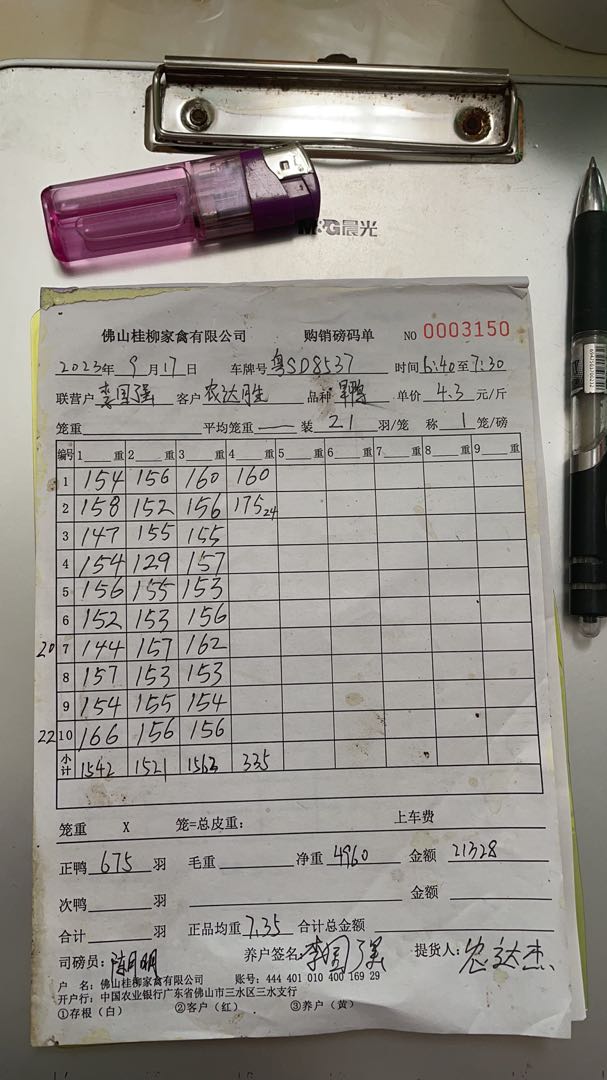 M&G晨光
佛山桂柳家禽有限公司 购销磅码单 NO 0003150
2023年 9月17日 车牌号 粤SD8537 时间 6:40至7:30
联营户 李国强 客户 农达胜 品种 单价 4.3 元/斤
笼重 平均笼重 — 装 21 羽/笼 称 1 笼/磅
编号 1 重 2 重 3 重 4 重 5 重 6 重 7 重 8 重 9 重
1 154 156 160 160
2 158 152 156 175 24
3 147 155 155
4 154 129 157
5 156 155 153
6 152 153 156
20 7 144 157 162
8 157 153 153
9 154 155 154
22 10 166 156 156
小计 1542 1521 1562 335
笼重 X 笼=总皮重: 上车费
正鸭 675 羽 毛重 净重 4960 金额 21328
次鸭 羽 金额
合计 羽 正品均重 7.35 合计总金额
司磅员: 陈月明 养户签名 李国强 提货人: 农达杰
户 名: 佛山桂柳家禽有限公司 账号: 444 401 010 400 169 29
开户行: 中国农业银行广东省佛山市三水区三水支行
①存根（白） ②客户（红） ③养户（黄）